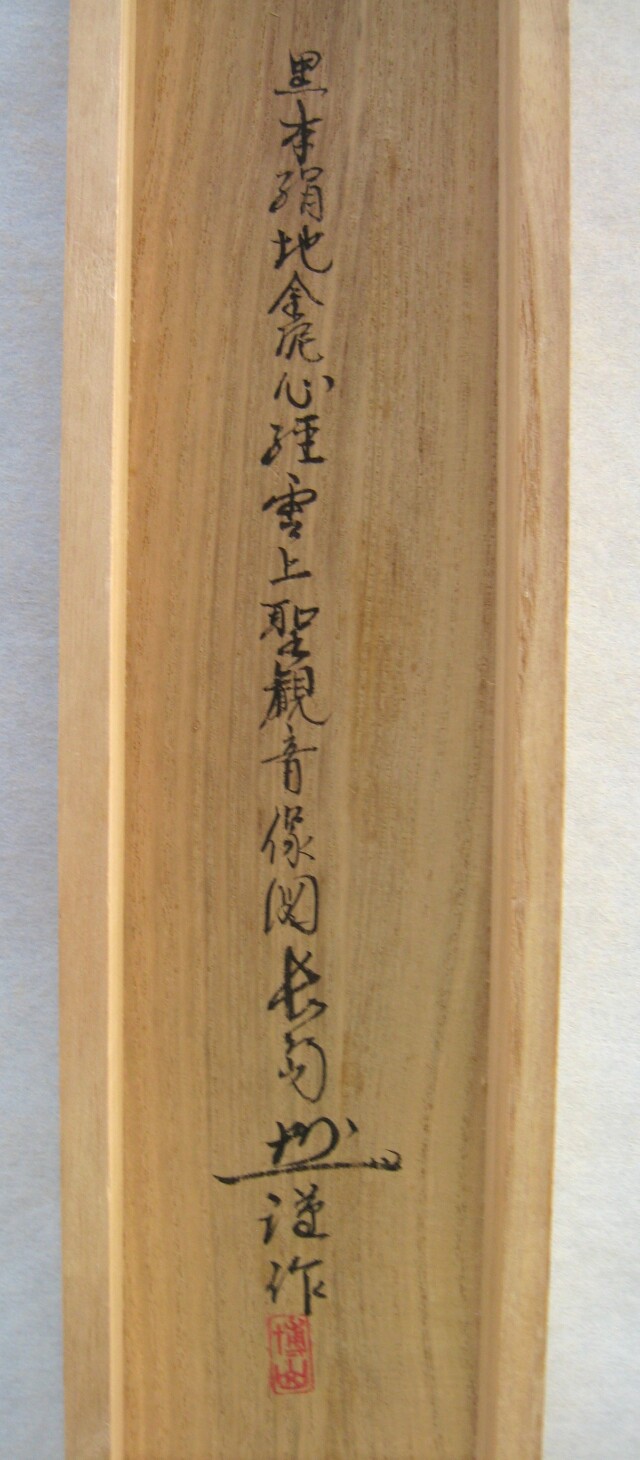 黒本絹地金泥心經雲上聖観音像図長句
謹作
博山